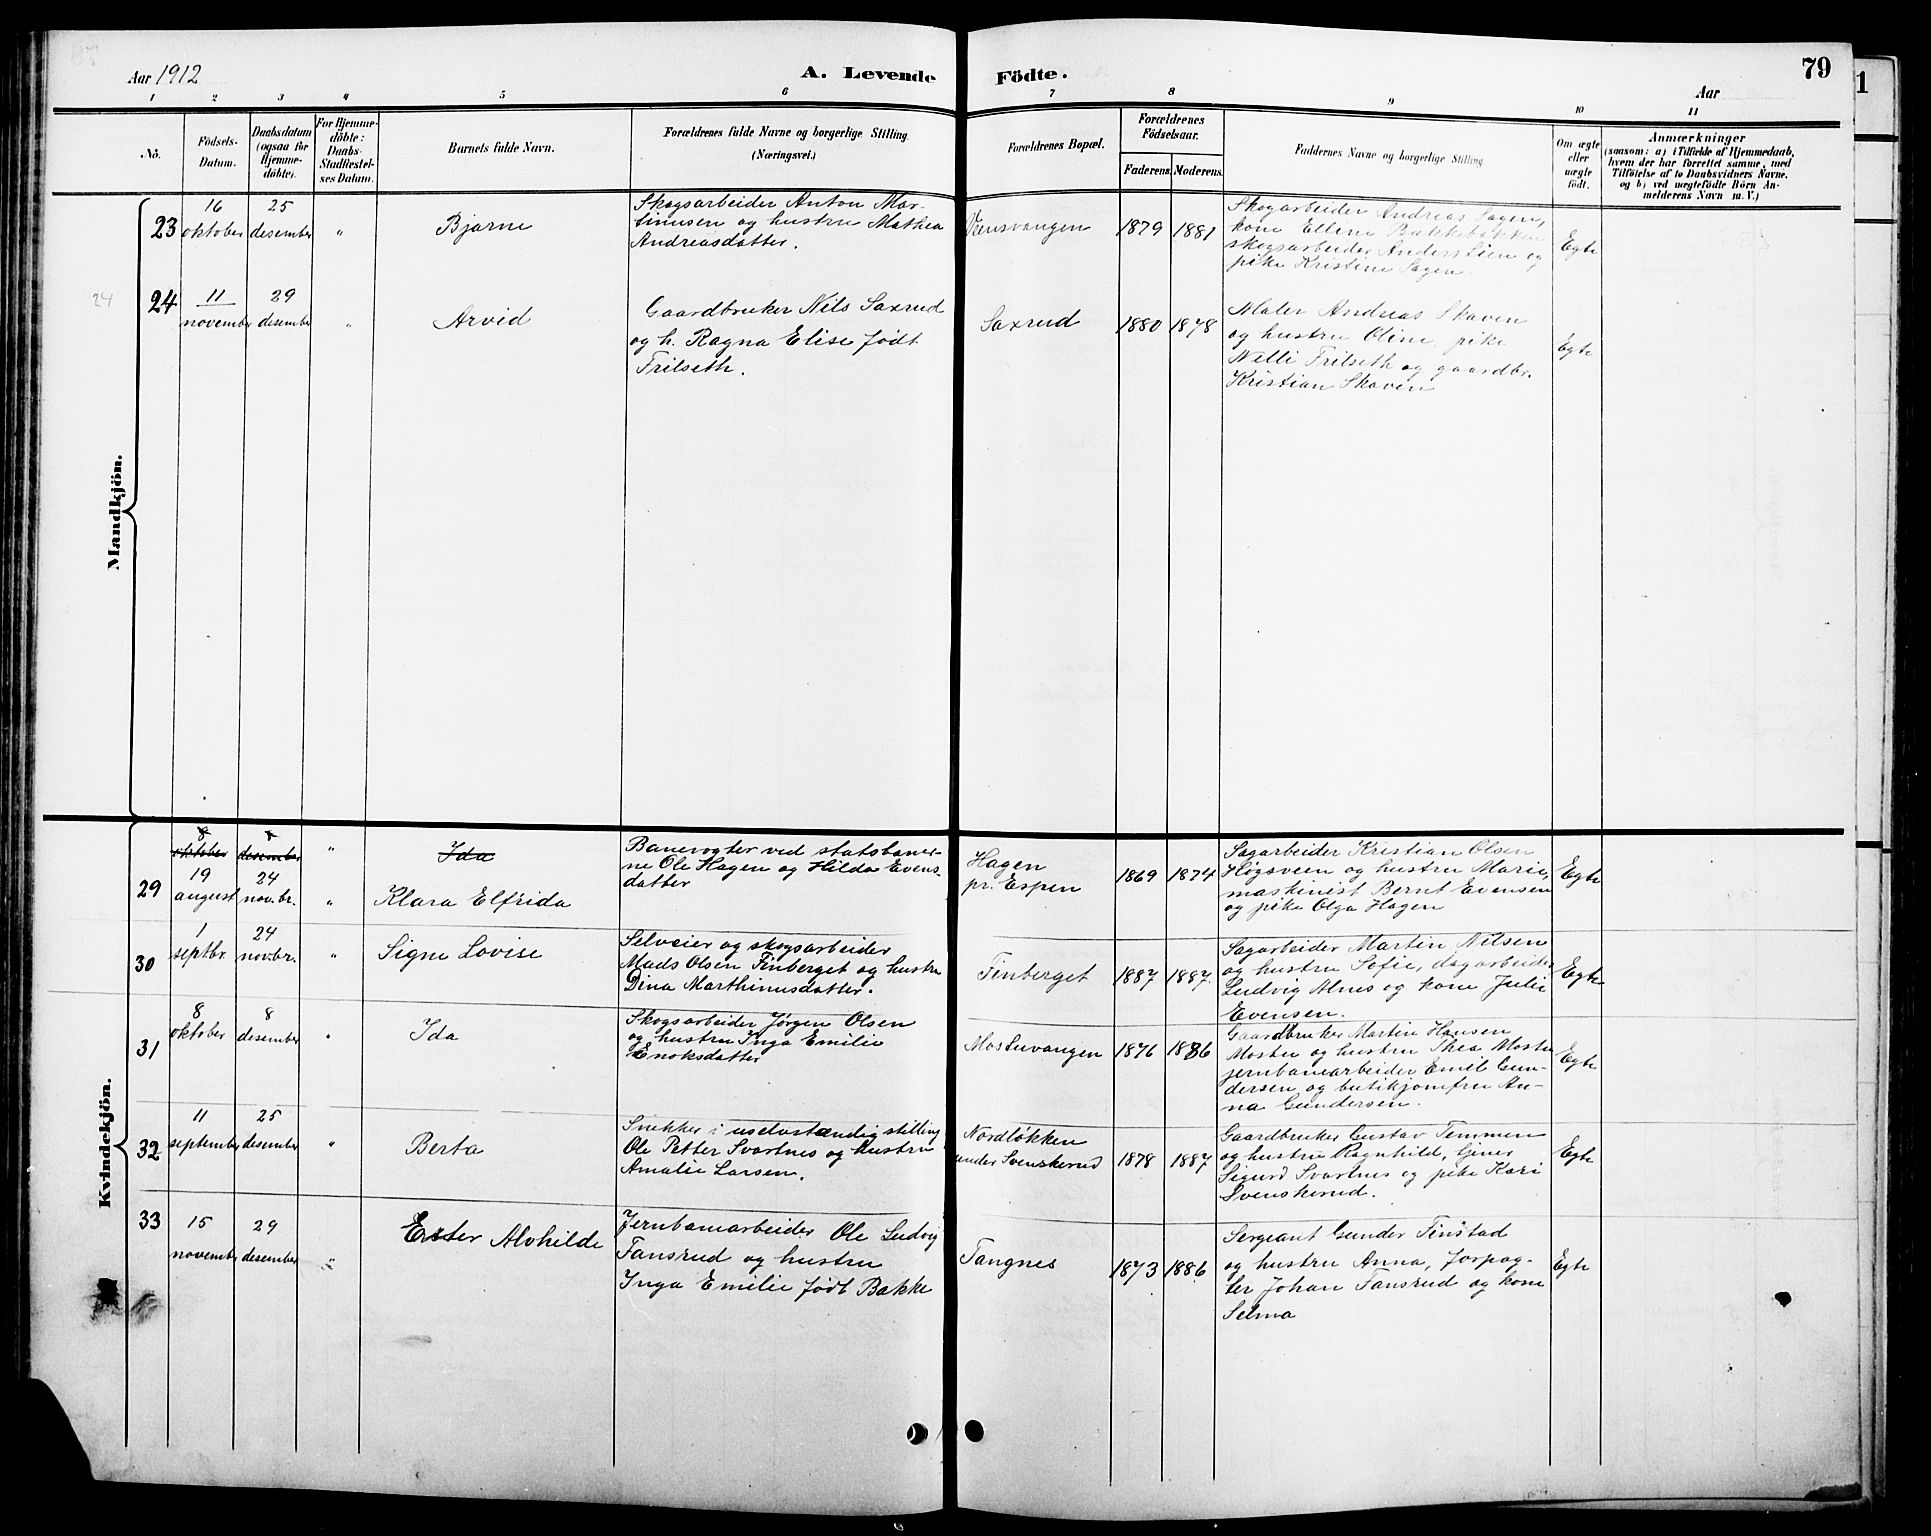 Aar 1912
A. Levende Födte.
79
Aar
1 2 3 4 5 6 7 8 9 10 11
No.
Födsels-
Datum.
Daabsdatum
(ogsaa for
Hjemme-
döbte).
For Hjemme-
döbte:
Daabs-
Stadfæstel-
ses Datum.
Barnets fulde Navn.
Forældrenes fulde Navne og borgerlige Stilling
(Næringsvei.)
Forældrenes Bopæl.
Forældrenes
Födselsaar.
Faderens. Moderens.
Faddernes Navne og borgerlige Stilling.
Om ægte
eller
uægte
født.
Anmærkninger
(saasom: a) i Tilfælde af Hjemmedaab,
hvem der har forrettet samme, med
Tilföielse af to Daabsvidners Navne,
og b) ved uægtefödte Börn An-
melderens Navn m. V.)
Mandkjön.
23
16
oktober
25
desember
"
Bjarne
Skogsarbeider Anton Mar-
tinusen og hustru Mathea
Andreasdatter.
Vensvangen
1879 1881
Skogarbeider Andreas Sagen,
kone Elline Bakkebakken
skogsarbeider Anders Lien og
pike Kristine Sagen.
Egte
24
24
11
november
29
desember
"
Arvid
Gaardbruker Nils Saxrud
og h. Ragna Elise født
Frilseth.
Saxrud
1880 1878
Maler Andreas Skaven
og hustru Oline, pike
Nelli Frilseth og gaardbr.
Kristian Skaven
Egte
Kvindekjön.
8
oktober
8
desember
"
Ida
29
19
august
24
nov.br.
"
Klara Elfrida
Banevogter ved statsbaner-
ne Ole Hagen og Hilda Evens-
datter
Hagen
pr. Espen
1869 1874
Sagarbeider Kristian Olsen
Høgsveen og hustru Marie,
maskinist Bernt Evensen
og pike Olga Hagen
Egte
30
1
septbr
24
nov.br.
"
Signe Lovise
Selveier og skogsarbeider
Mads Olsen Finberget og hustru
Dina Marthinusdatter.
Finberget
1887 1887.
Sagarbeider Martin Nilsen
og hustru Sofie, dagarbeider
Ludvig Alnes og kone Julie
Evensen.
Egte
31
8
oktober
8
desember
"
Ida
Skogsarbeider Jørgen Olsen
og hustru Inga Emilie
Enoksdatter
Mostuvangen
1876 1886
Gaardbruker Martin Hansen
Mostu og hustru Thea Mostu
jernbanearbeider Emil Gun-
dersen og butikjomfru An-
na Gundersen.
Egte
32
11
september
25
desember
"
Berta
Snekker i uselvstændig stilling
Ole Petter Svartnes og hustru
Amalie Larsen.
Nordløkken
under Svenskerud
1878 1887
Gaardbruker Gustav Temmen
og hustru Ragnhild, Gjner
Sigurd Svartnes og pike Kari
Svenskerud.
Egte
33
15
november
29
desember
"
Ester Alvhilde
Jernbanearbeider Ole Ludvig
Tansrud og hustru
Inga Emilie født Bakke
Tangnes
1873 1886
Sergeant Gunder Finstad
og hustru Anna, forpag-
ter Johan Tansrud og kone
Selma
Egte